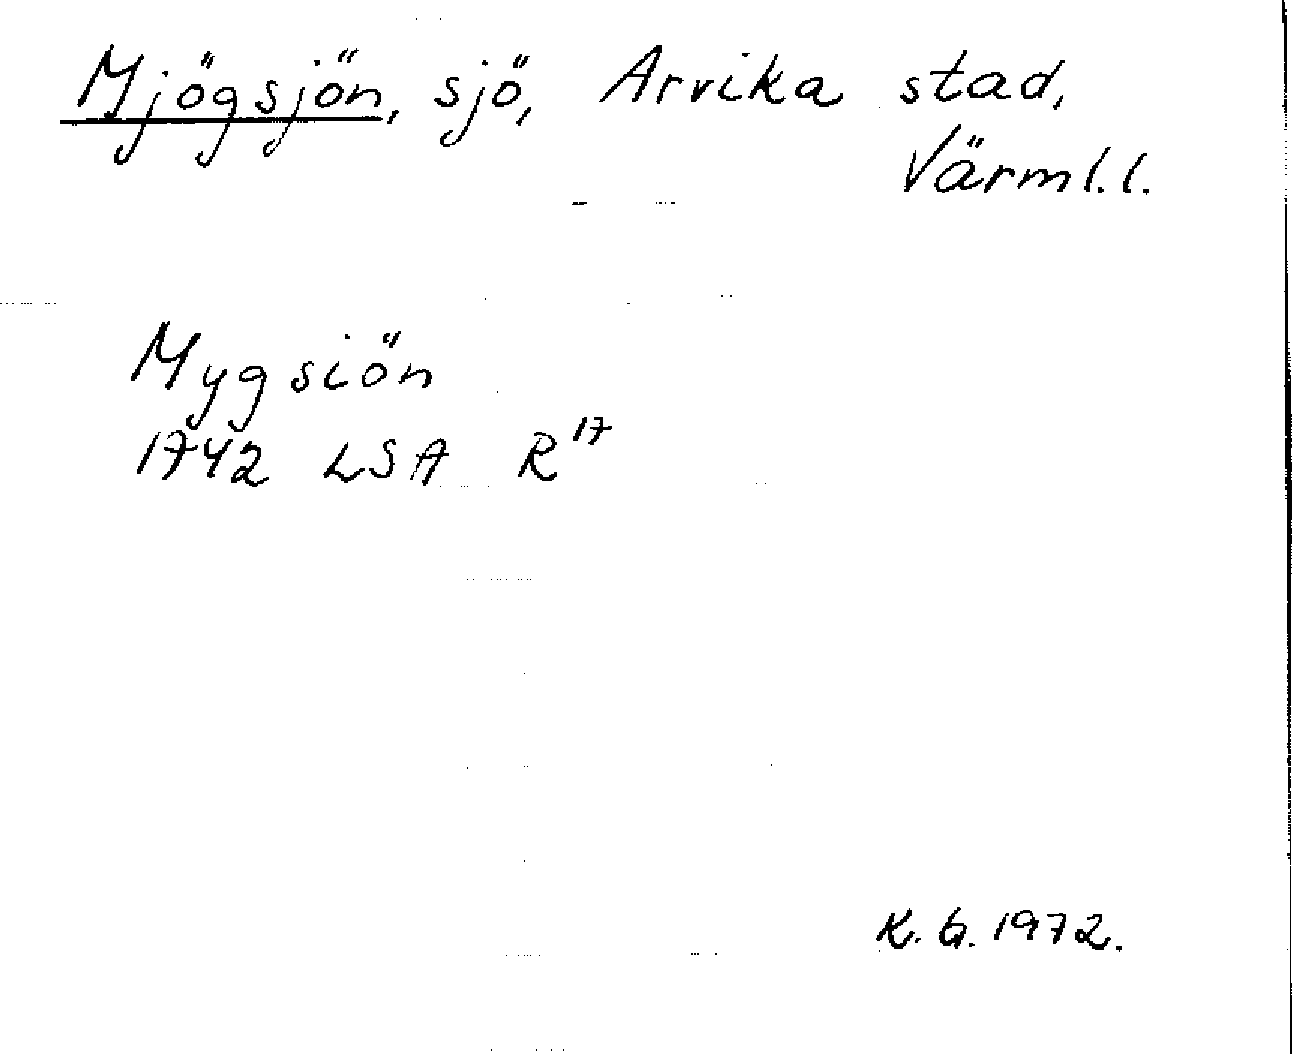 Mjögsjön, sjö, Arvika stad,
Värml.l.
Mygsiön
1742 LSA R¹⁷
K.G. 1972.